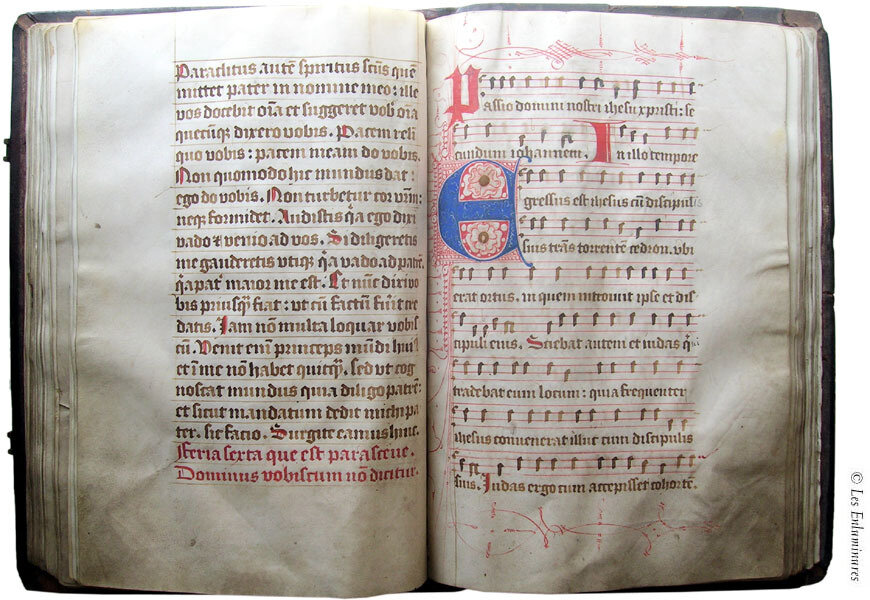 Paraclitus autē spiritus scūs quē
mittet pater in nomine meo: ille
vos docebit oīa et suggeret vob oīa
quecūqȝ dixero vobis. Pacem reli
quo vobis: pacem meam do vobis.
Non quomodo hic mundus dat:
ego do vobis. Non turbetur cor vrm:
neqȝ formidet. Audistis qa ego dixi
vado et venio ad vos. Si diligeretis
me gauderetis vtiqȝ qa vado ad patrē.
qa pater maior me est. Et nūc dixi vo
bis priusqȝ fiat: vt cū factū fuīt cre
datis. Iam nō multa loquar vobis
cū. Venit enī princeps mūdi huiꝰ
et ī me nō habet quicqȝ. sed vt cog
noscat mundus quia diligo patrē:
et sicut mandatum dedit michi pa
ter. sic facio. Surgite eamus hinc.
Feria sexta que est parasceue.
Dominus vobiscum nō dicitur.
Passio domini nostri ihesu xpristi: se
cundum iohannem. In illo tempore
Egressus est ihesus cū discipulis
suis trans torrentē cedron. vbi
erat ortus. in quem introiuit ipse et dis
cipuli eius. Sciebat autem et iudas qi
tradebat eum locum: quia frequenter
ihesus conuenerat illuc cum discipulis
suis. Iudas ergo cum accepisset cohortē.
© Les Enluminures